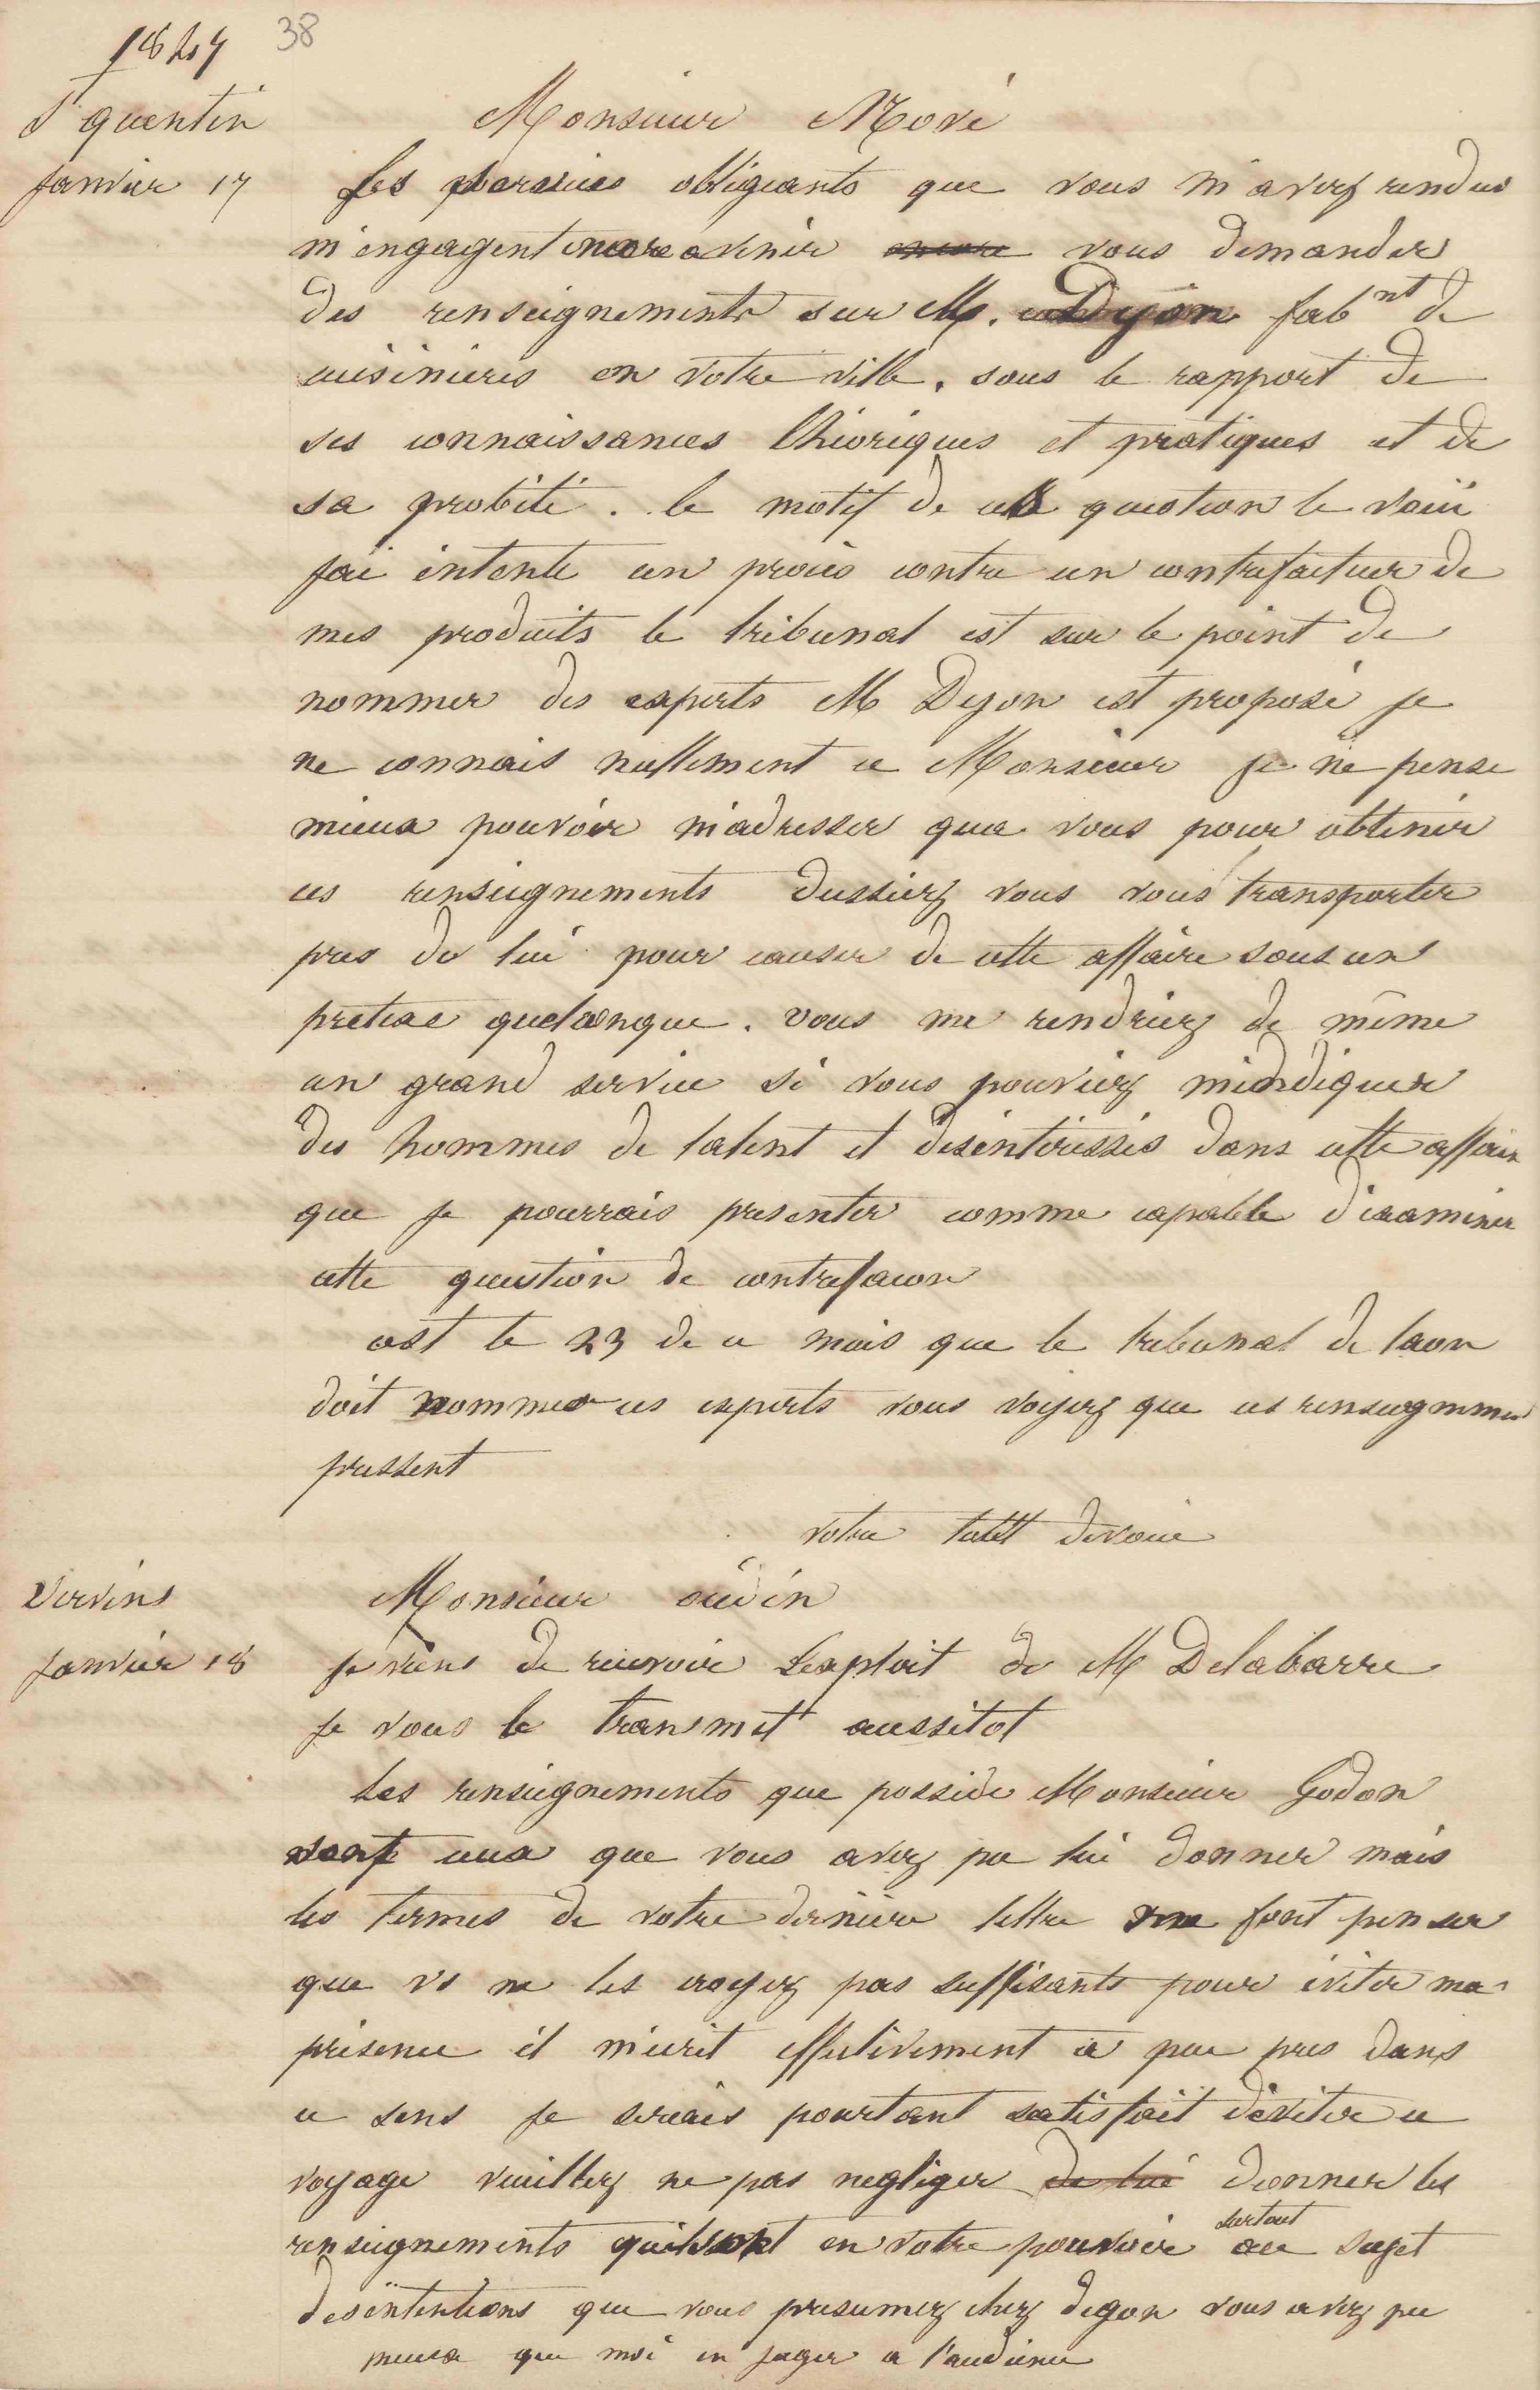 1847 38
St quentin
Janvier 17
Monsieur Moré
Les services obligeants que vous m'avez rendus
m'engagent encore a venir encore vous demander
des renseignements sur M. Dyon fabnt de
cuisinieres en votre ville. sous le rapport de
ses connaissances théoriques et pratiques et de
sa probité. le motif de cette question le voici
jai intenté un procès contre un contrefacteur de
mes produits le tribunal est sur le point de
nommer des experts M Deyon est proposé je
ne connais nullement ce Monsieur je ne pense
mieux pouvoir m'adresser qua vous pour obtenir
ces renseignements dussiez vous vous transporter
pres de lui pour causer de cette affaire sous un
pretexe quelconque. vous me rendriez de même
un grand service si vous pouviez mindiquer
des hommes de talent et desintéressés dans cette affaire
que je pourrais presenter comme capable d'examiner
cette question de contrefacon
cest le 23 de ce mois que le tribunal de laon
doit nommer ces experts vous voyez que ces renseignemens
pressent
votre tout devoué
Vervins
Janvier 18
Monsieur oudin
je viens de recevoir Lexploit de M Delabarre
je vous le transmet aussitot
Les renseignements que posside Monsieur Godon
sont ceux que vous avez pu lui donner mais
les termes de votre dernière lettre me font penser
que vs ne les croyez pas suffisants pour éviter ma
présence il m'ecrit effectivement a peu pres dans
ce sens je serais pourtant satisfait d'éviter ce
voyage veuillez ne pas negliger de lui donner les
renseignements quisont en votre pouvoir surtout au sujet
desintentions que vous presumez chez degon vous avez pu
mieux que moi en juger a l'audience